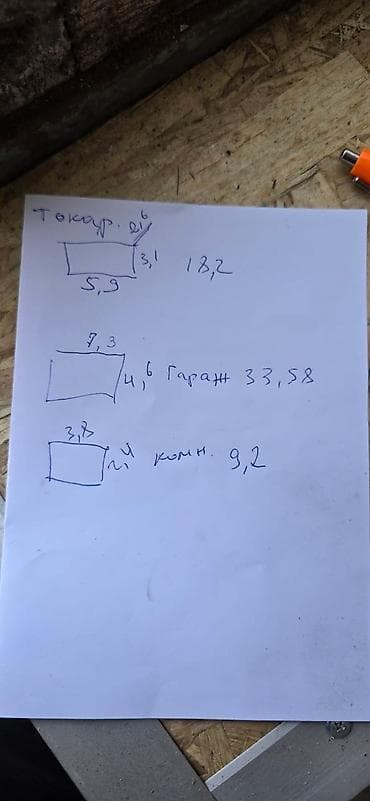 Токар. 2,6
3,1 18,2
5,9
7,3
4,6 Гараж 33,58
3,8
2,4 комн. 9,2